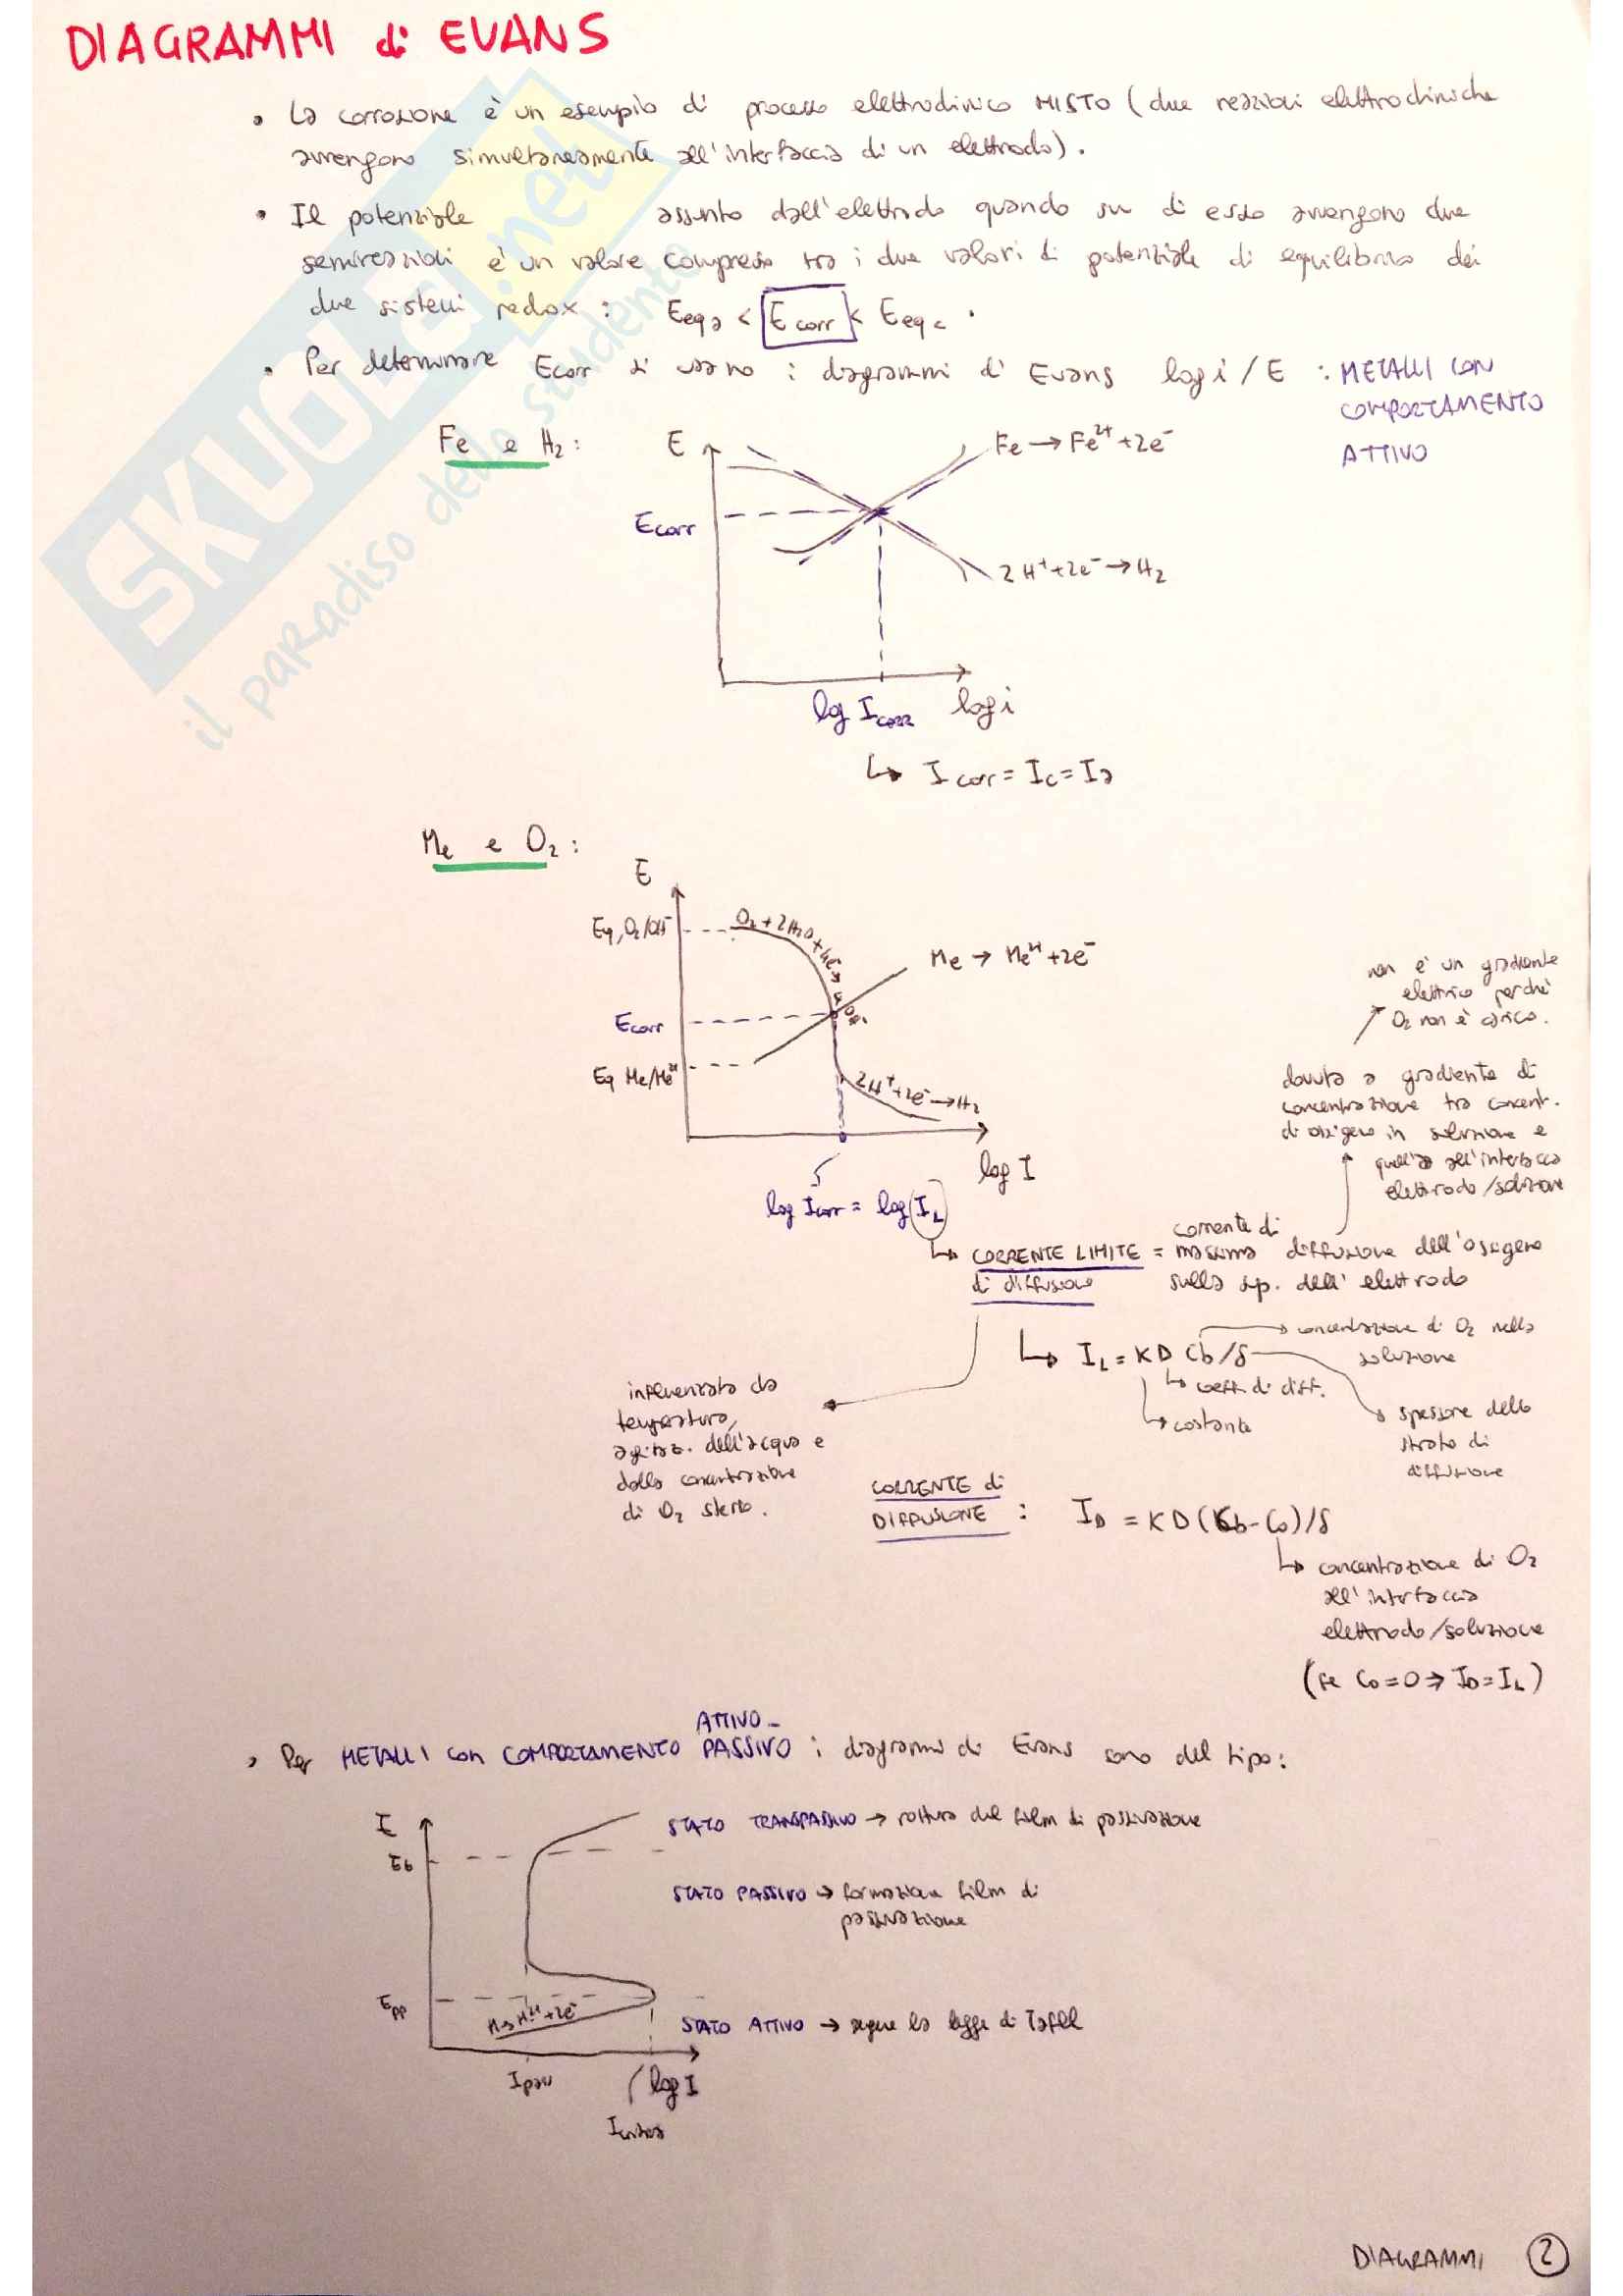 DIAGRAMMI di EVANS
• La corrosione è un esempio di processo elettrochimico MISTO (due reazioni elettrochimiche
avvengono simultaneamente all'interfaccia di un elettrodo).
• Il potenziale assunto dall'elettrodo quando su di esso avvengono due
semireazioni è un valore compreso tra i due valori di potenziale di equilibrio dei
due sistemi redox: Eeqa < Ecorr < Eeqc.
• Per determinare Ecorr si usano i diagrammi di Evans log i/E : METALLI CON
COMPORTAMENTO
ATTIVO
Fe e H2:
E
Fe → Fe2+ + 2e-
Ecorr
2H+ + 2e- → H2
log Icorr
log i
↳ Icorr = Ic = Ia
Me e O2:
E
Eq, O2/OH-
O2 + 2H2O + 4e- →
Me → Me2+ + 2e-
Ecorr
Eq Me/Me2+
2H+ + 2e- → H2
log I
log Icorr = log(IL)
non è un gradiente
elettrico perché
O2 non è carico.
dovuta a gradiente di
concentrazione tra concent.
di ossigeno in soluzione e
quella all'interfaccia
elettrodo/soluzione
↳ CORRENTE LIMITE di diffusione = corrente di massima diffusione dell'ossigeno
sulla sup. dell'elettrodo
↳ IL = KD Cb/δ
concentrazione di O2 nella
soluzione
↳ coeff. di diff.
↳ costante
spessore dello
strato di
diffusione
influenzata da
temperatura,
agitaz. dell'acqua e
dalla concentrazione
di O2 stessa.
CORRENTE di
DIFFUSIONE : ID = KD(Cb-Co)/δ
↳ concentrazione di O2
all'interfaccia
elettrodo/soluzione
(se Co=0 ⇒ ID=IL)
• Per METALLI con COMPORTAMENTO ATTIVO-PASSIVO i diagrammi di Evans sono del tipo:
E
Eb
STATO TRANSPASSIVO → rottura del film di passivazione
STATO PASSIVO → formazione film di
passivazione
Epp
M → M2+ + 2e-
STATO ATTIVO → segue la legge di Tafel
Ipass
log I
Icritica
DIAGRAMMI 2
SKUOLA.net
il paradiso dello studente